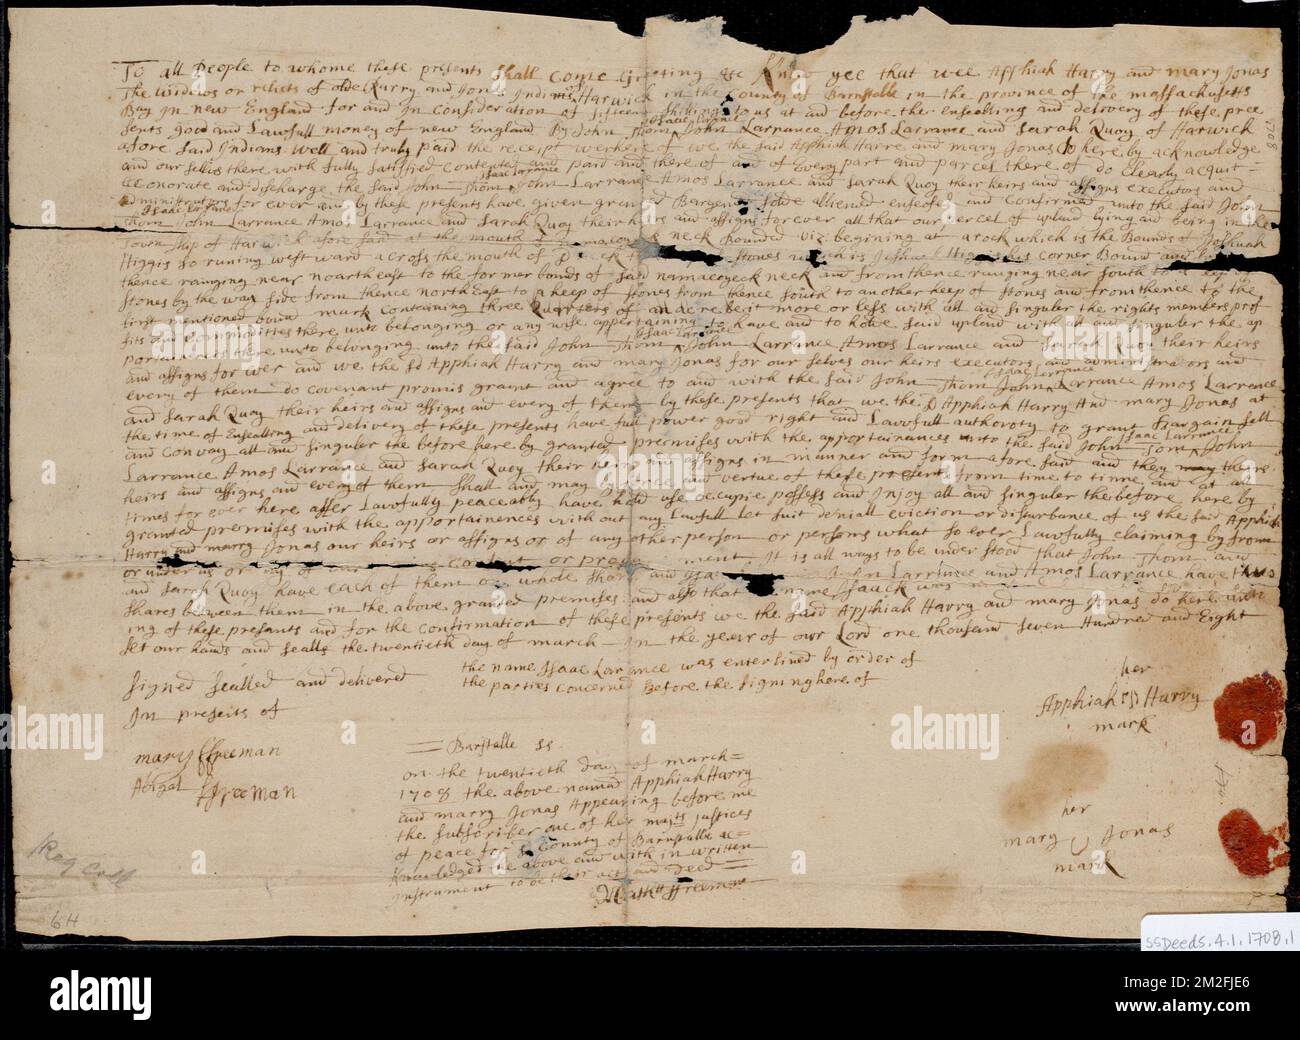 To all People to whome these presents Shall Come Greeting &c Know yee that wee Apphiah Harry and mary Jonas
The widdows or relicts of olde Qurry and Jonas Indians Harwick in the County of Barnstable in the province of the massachusetts
Bay In new England for and In Consideration of fifteen Shillings to us at and before the ensealling and delivery of these pre
sents good and Lawfull money of new England By John Thom Isaac Larrance John Larrance Amos Larrance and Sarah Quoy of Harwick
afore said Indians well and truly paid the receipt whereof we the said Apphiah Harre and mary Jonas do here by acknowledge
and our selves there with fully satisfied contented and paid and there of and of Every part and parcel there of do Clearly acquit
exonorate and discharge the said John Thom Isaac Larrance John Larrance Amos Larrance and Sarah Quoy their heirs and assigns executors and
administrators for ever and by these presents have given granted Bargened solde aliened enfeofed and Confirmed unto the said John
Thom Isaac Larrance John Larrance Amos Larrance and Sarah Quoy their heirs and assigns for ever all that our percel of upland lying and being in the
Town ship of Harwick afore said at the mouth of namacoyck neck bounded viz. begining at a rock which is the Bounds of Joshuah
Higgis so runing west ward across the mouth of neck stones which is Joshua Higgis his corner Bound and
thence ranging near noarth east to the former bounds of said namacoyeck neck and from thence ranging near South to a heep of
stones by the way side from thence north East to a heep of stones from thence South to another heep of stones and from thence to the
first mentioned bound mark containing three Quarters of an acre be it more or less with all and singuler the rights members prof
fits and commodities there unto belonging or any wise appertaining to have and to holde said upland with all and singuler the ap
portenances there unto belonging unto the said John Thom Isaac Larrance John Larrance Amos Larrance and Sarah Quoy their heirs
and assigns for ever and we the sd Apphiah Harry and mary Jonas for our selves our heirs executors and administrators and
every of them do covenant promis grant and agree to and with the said John Thom Isaac Larrance John Larrance Amos Larrance
and Sarah Quoy their heirs and assigns and every of them by these presents that we the sd Apphiah Harry And mary Jonas at
the time of Ensealling and delivery of these presents have full power good right and Lawfull authoroty to grant Bargain sell
and Convay all and singuler the before here by granted premises with the apportainances unto the said John Tom Isaac Larrance John
Larrance Amos Larrance and Sarah Quoy their heirs and assigns in manner and form afore said and they theirs
heirs and assigns and every of them shall and may by force and vertue of these presents from time to time and at all
times for ever here after Lawfully peaceably have hold use occupie possess and Injoy all and singuler the before here by
granted premises with the apportainences with out any Lawfull let suit deniall eviction or disturbance of us the said Apphiah
Harry and marry Jonas our heirs or assigns or of any other person or persons what so ever Lawfully claiming by from
or under us or any of our It is all ways to be under stood that John Thom and
and Sarah Quoy have each of them one whole share and Isaac John Larrance and Amos Larrance have two
shares between them in the above granted premises and also that the name Isaack was
ing of these presants and for the confirmation of these presents we the said Apphiah Harry and mary Jonas do here unto
set our hands and sealls the twentieth day of march In the year of our Lord one thousand seven Hundred and Eight
Signed sealled and delivered
In presents of
the name Isaac Larrance was enterlined by order of
the parties concerned Before the signing here of
her
Apphiah Harry
mark
mary ffreeman
Abigal ffreeman
= Barstalle ss
on the twentieth day of march =
1708 the above named Apphiah Harry
and marry Jonas Appearing before me
the subscriber one of her majts justices
of peace for sd County of Barnstalle ac=
knowledged the above and with in written
instrument to be their act and deed =
ffreeman
her
mary Jonas
mark
1708
6H
SSDeeds.4.1.1708.1
alamy
Image ID: 2M2FJE6
www.alamy.com